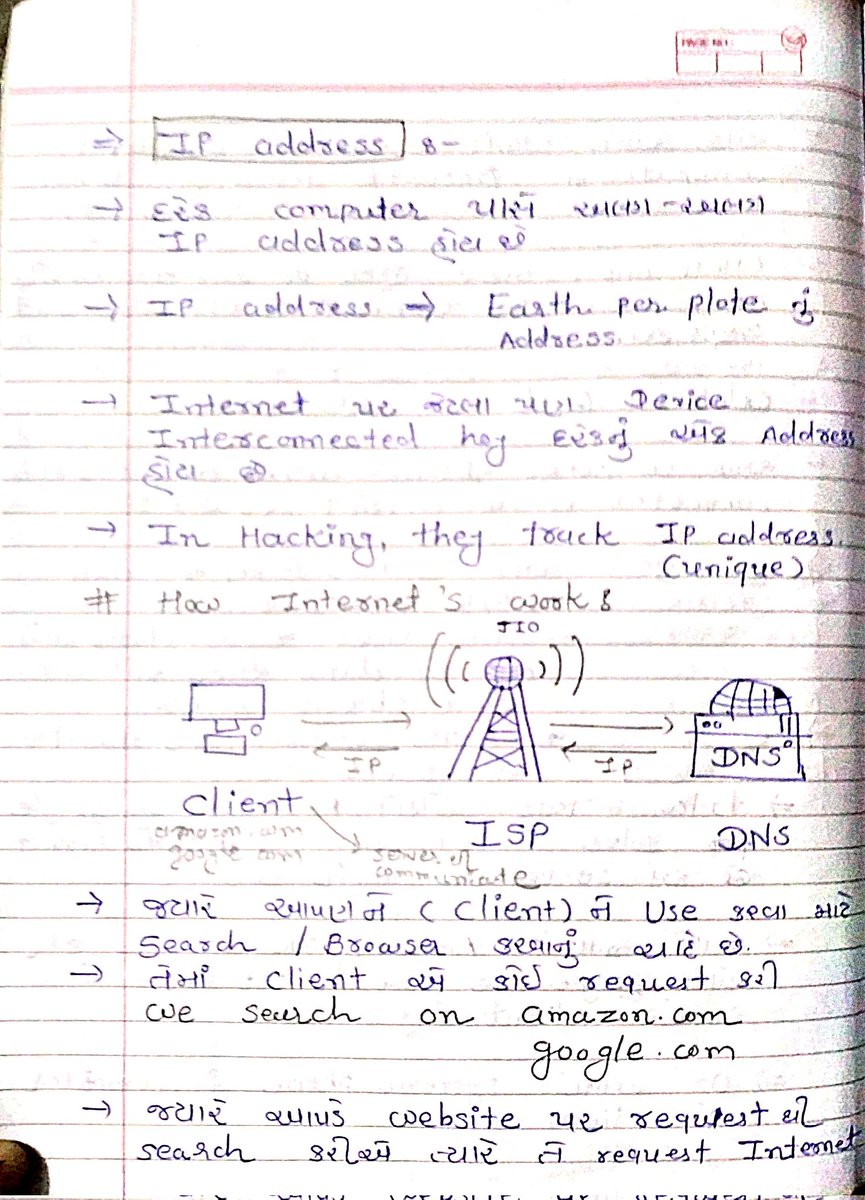 PAGE NO.
⇒ IP address :-
→ દરેક computer પાસે અલગ-અલગ
IP address હોય છે
→ IP address → Earth per plate નું
Address
→ Internet પર જેટલા પણ Device
Interconnected hey દરેકનું એક Address
હોય છે
→ In Hacking, they track IP address.
(unique)
# How Internet's work :
JIO
IP IP DNS
Client ISP DNS
amazon.com
google com server થી
communicate
→ જ્યારે આપણને (Client) ને Use કરવા માટે
Search / Browser કરવાનું છે.
→ તેમાં Client એ કોઈ request કરી
we search on amazon.com
google.com
→ જ્યારે આપણે website પર request થી
search કરીએ ત્યારે તે request Internet